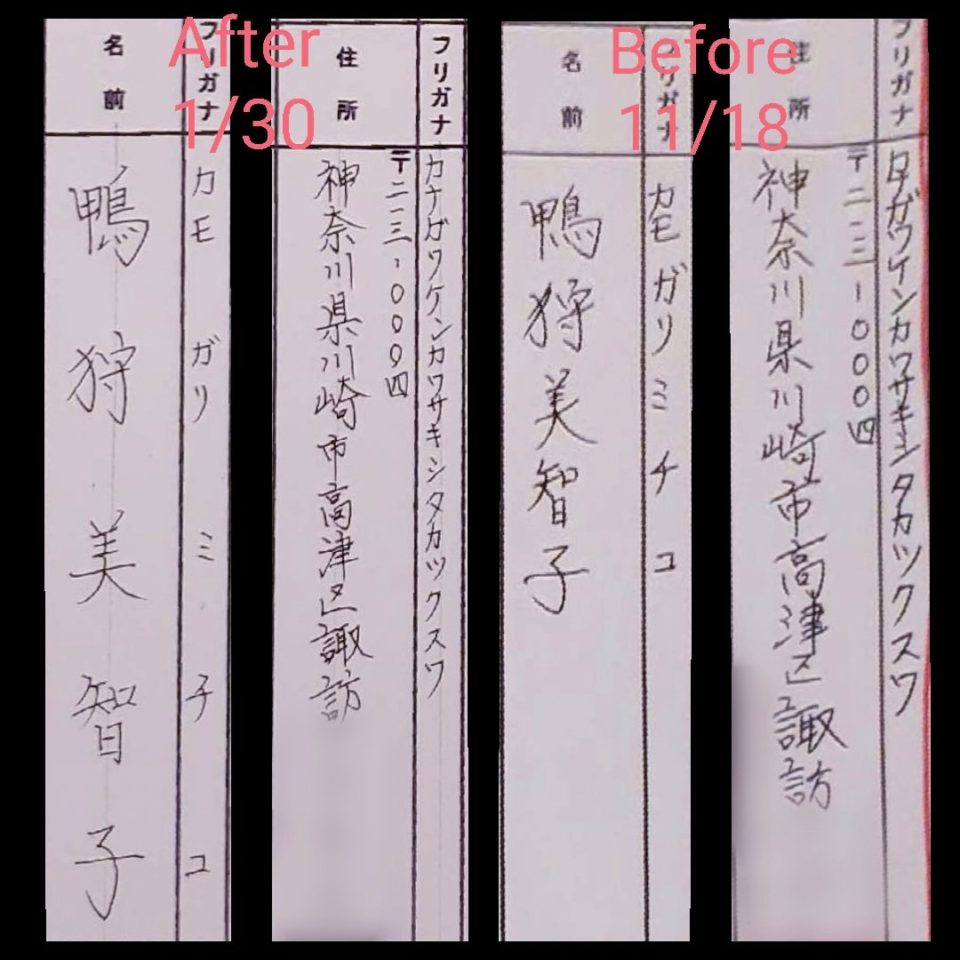 After
1/30
名前
フリガナ
鴨狩美智子
カモガリミチコ
住所
フリガナ
カナガワケンカワサキシタカツクスワ
〒二一三-〇〇〇四
神奈川県川崎市高津区諏訪
Before
11/18
名前
フリガナ
鴨狩美智子
カモガリミチコ
住所
フリガナ
カナガワケンカワサキシタカツクスワ
〒二一三-〇〇〇四
神奈川県川崎市高津区諏訪